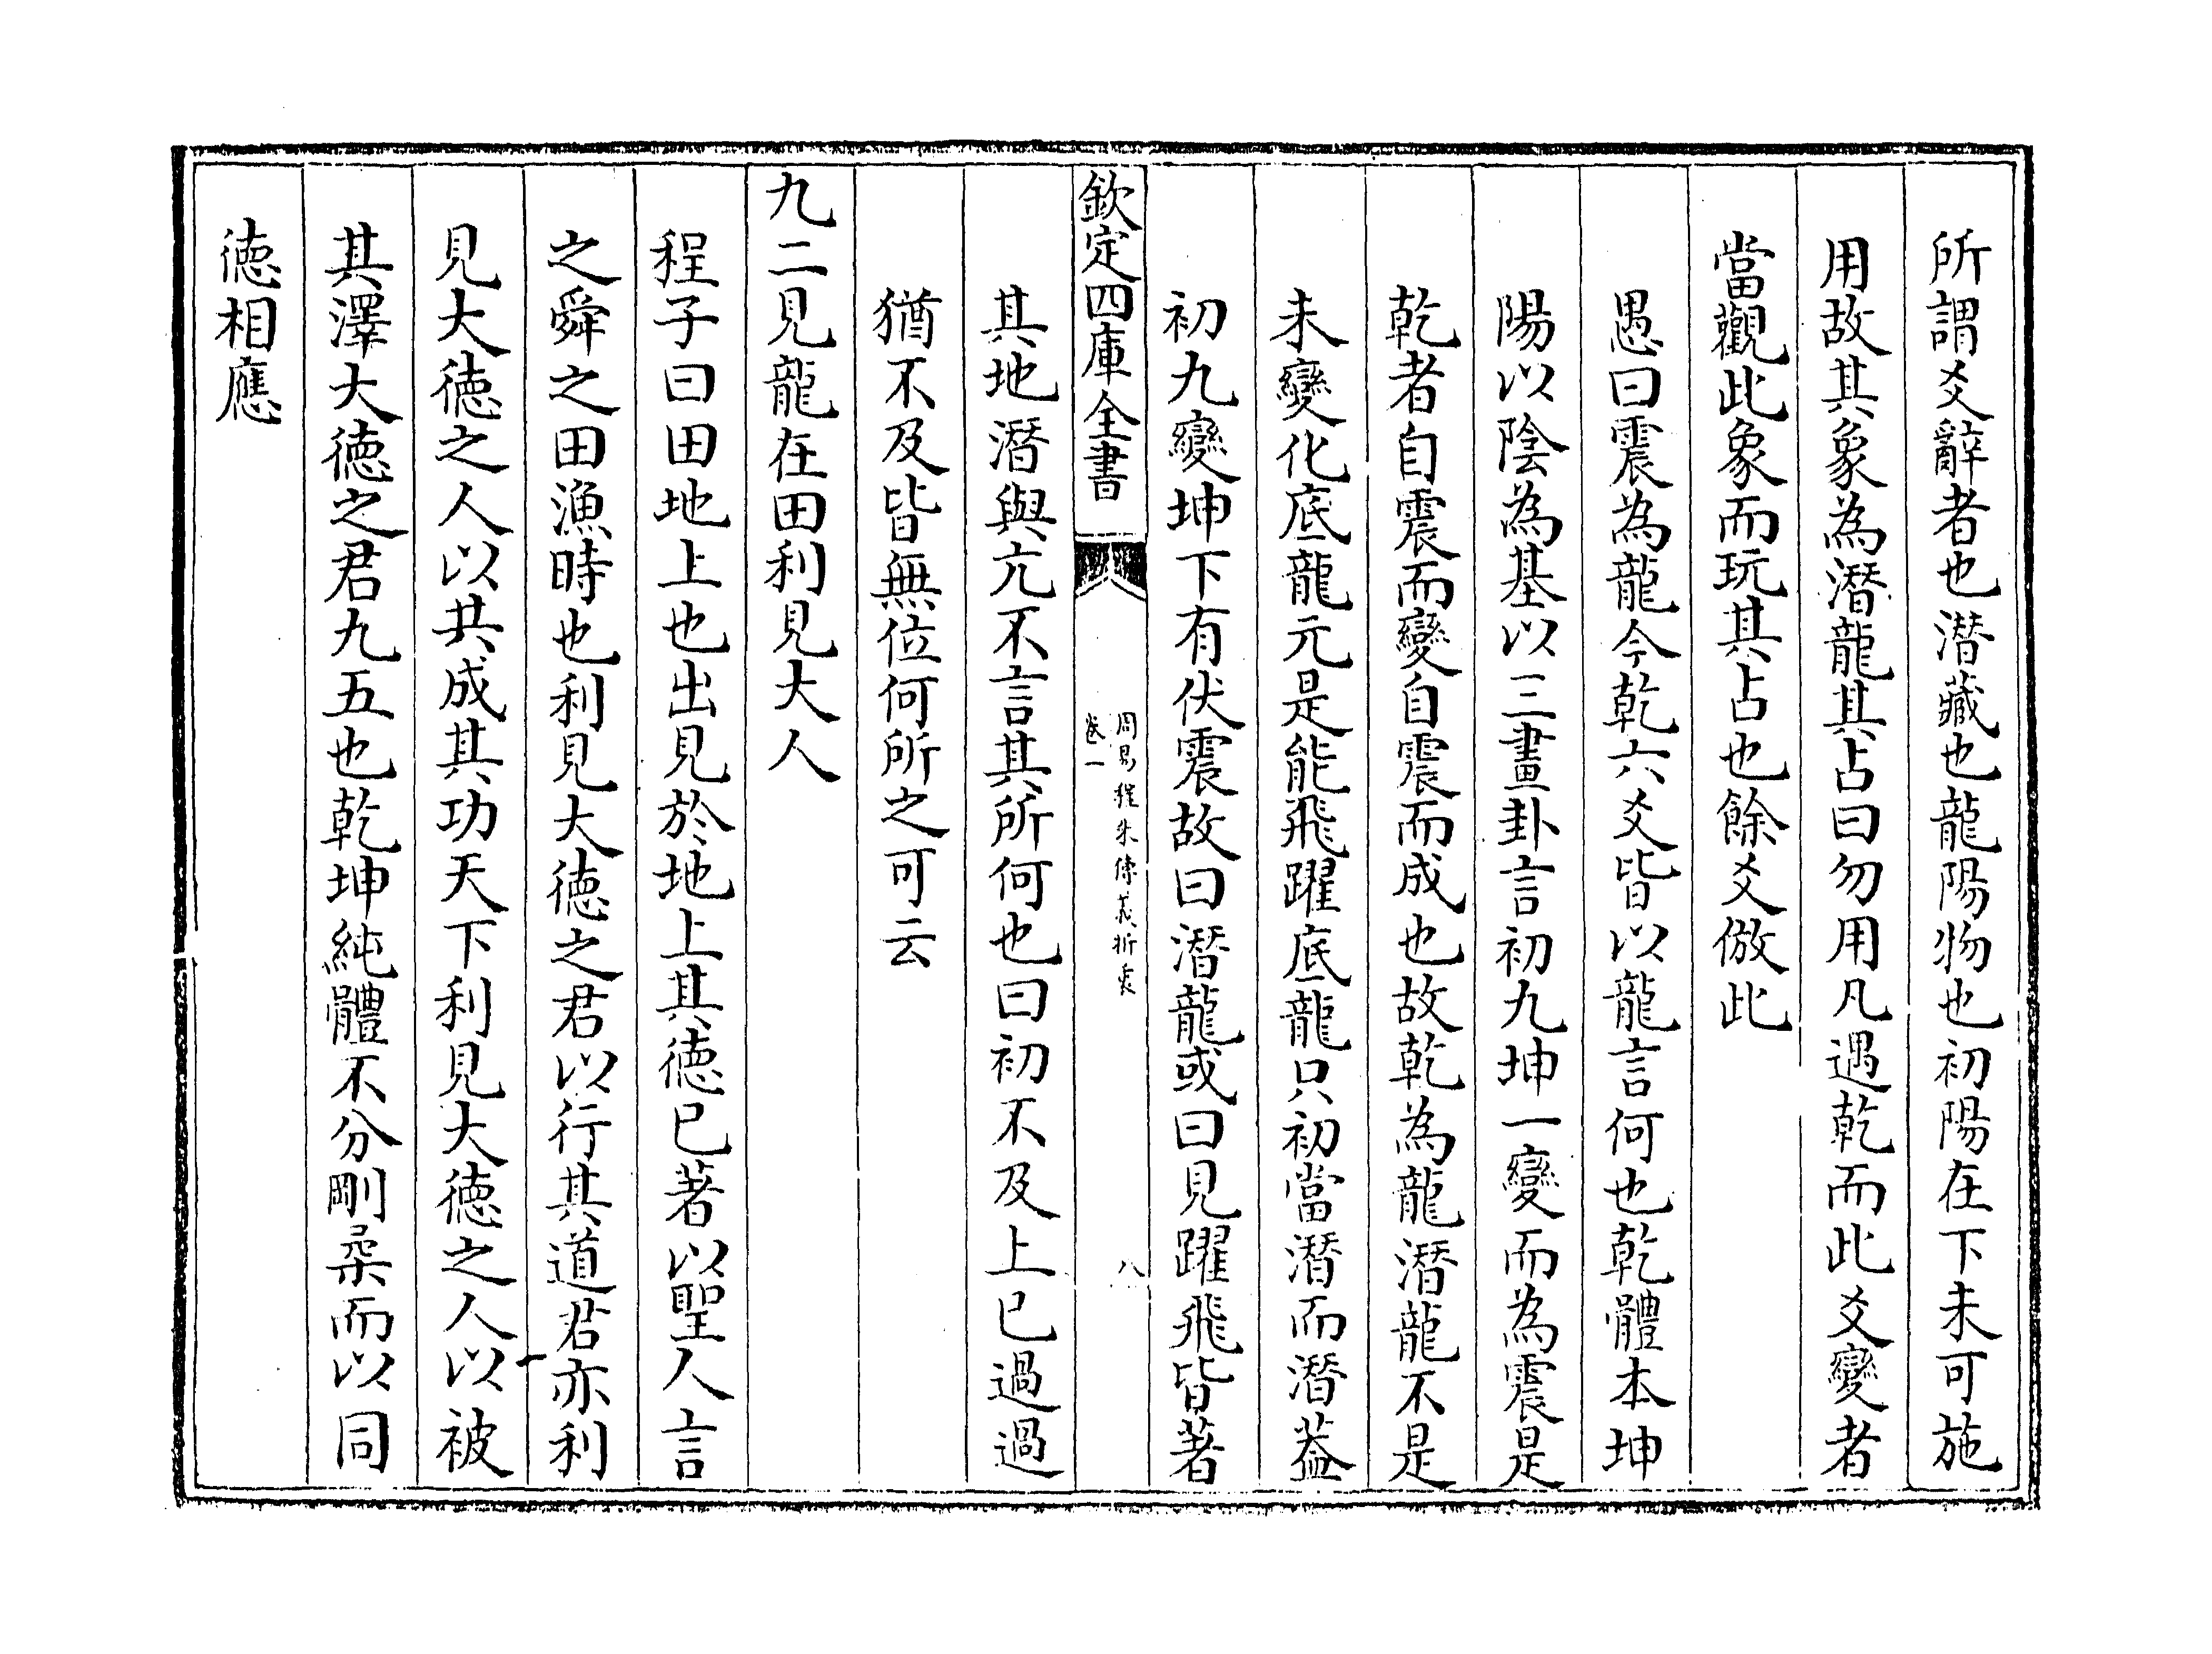 所謂爻辭者也潛藏也龍陽物也初陽在下未可施
用故其象為潛龍其占曰勿用凡遇乾而此爻變者
當觀此象而玩其占也餘爻倣此
愚曰震為龍今乾六爻皆以龍言何也乾體本坤
陽以陰為基以三畫卦言初九坤一變而為震是
乾者自震而變自震而成也故乾為龍潛龍不是
未變化底龍元是能飛躍底龍只初當潛而潛葢
初九變坤下有伏震故曰潛龍或曰見躍飛皆著
欽定四庫全書
周易程朱傳義折衷
卷一
八
其地潛與亢不言其所何也曰初不及上已過過
猶不及皆無位何所之可云
九二見龍在田利見大人
程子曰田地上也出見於地上其德已著以聖人言
之舜之田漁時也利見大德之君以行其道君亦利
見大德之人以共成其功天下利見大德之人以被
其澤大德之君九五也乾坤純體不分剛柔而以同
德相應